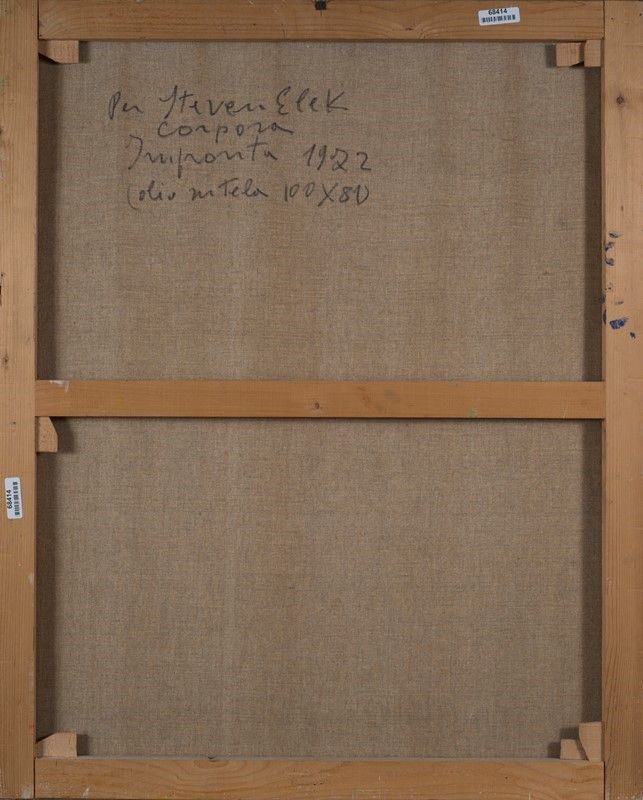 68414
Per Steven Elek
Corpora
Impronta 1922
(olio su tela 100X80
68414